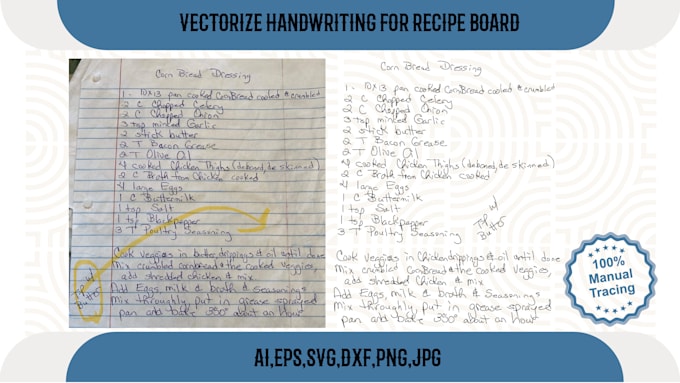 VECTORIZE HANDWRITING FOR RECIPE BOARD
Corn Bread Dressing
1 - 10X13 pan cooked CornBread cooled & crumbled
2 C Chopped Celery
2 C Chopped Onion
3 tsp minced Garlic
2 stick butter
2 T Bacon Grease
2 T Olive Oil
4 cooked Chicken Thighs (deboned, de skinned)
2 C Broth from Chicken cooked
4 large Eggs
1 C Buttermilk
1 tsp Salt
1 tsp Blackpepper
3 T Poultry Seasoning
Cook veggies in butter, drippings & oil until done
Mix crumbled cornbread & the cooked veggies,
add shredded chicken & mix
Add Eggs, milk & broth & Seasonings
Mix throughly, put in grease sprayed
pan and bake 350° about an hour
w/
Corn Bread Dressing
1 - 10X13 pan cooked CornBread cooled & crumbled
2 C Chopped Celery
2 C Chopped Onion
3 tsp minced Garlic
2 stick butter
2 T Bacon Grease
2 T Olive Oil
4 cooked Chicken Thighs (deboned, de skinned)
2 C Broth from Chicken cooked
4 large Eggs
1 C Buttermilk
1 tsp Salt
1 tsp Blackpepper
3 T Poultry Seasoning
w/
Cook veggies in Chicken drippings & oil until done
Mix crumbled CornBread & the cooked veggies,
add shredded Chicken & mix
Add Eggs, milk & broth & Seasonings
Mix throughly, put in grease sprayed
pan and bake 350° about an hour
100%
Manual
Tracing
AI,EPS,SVG,DXF,PNG,JPG